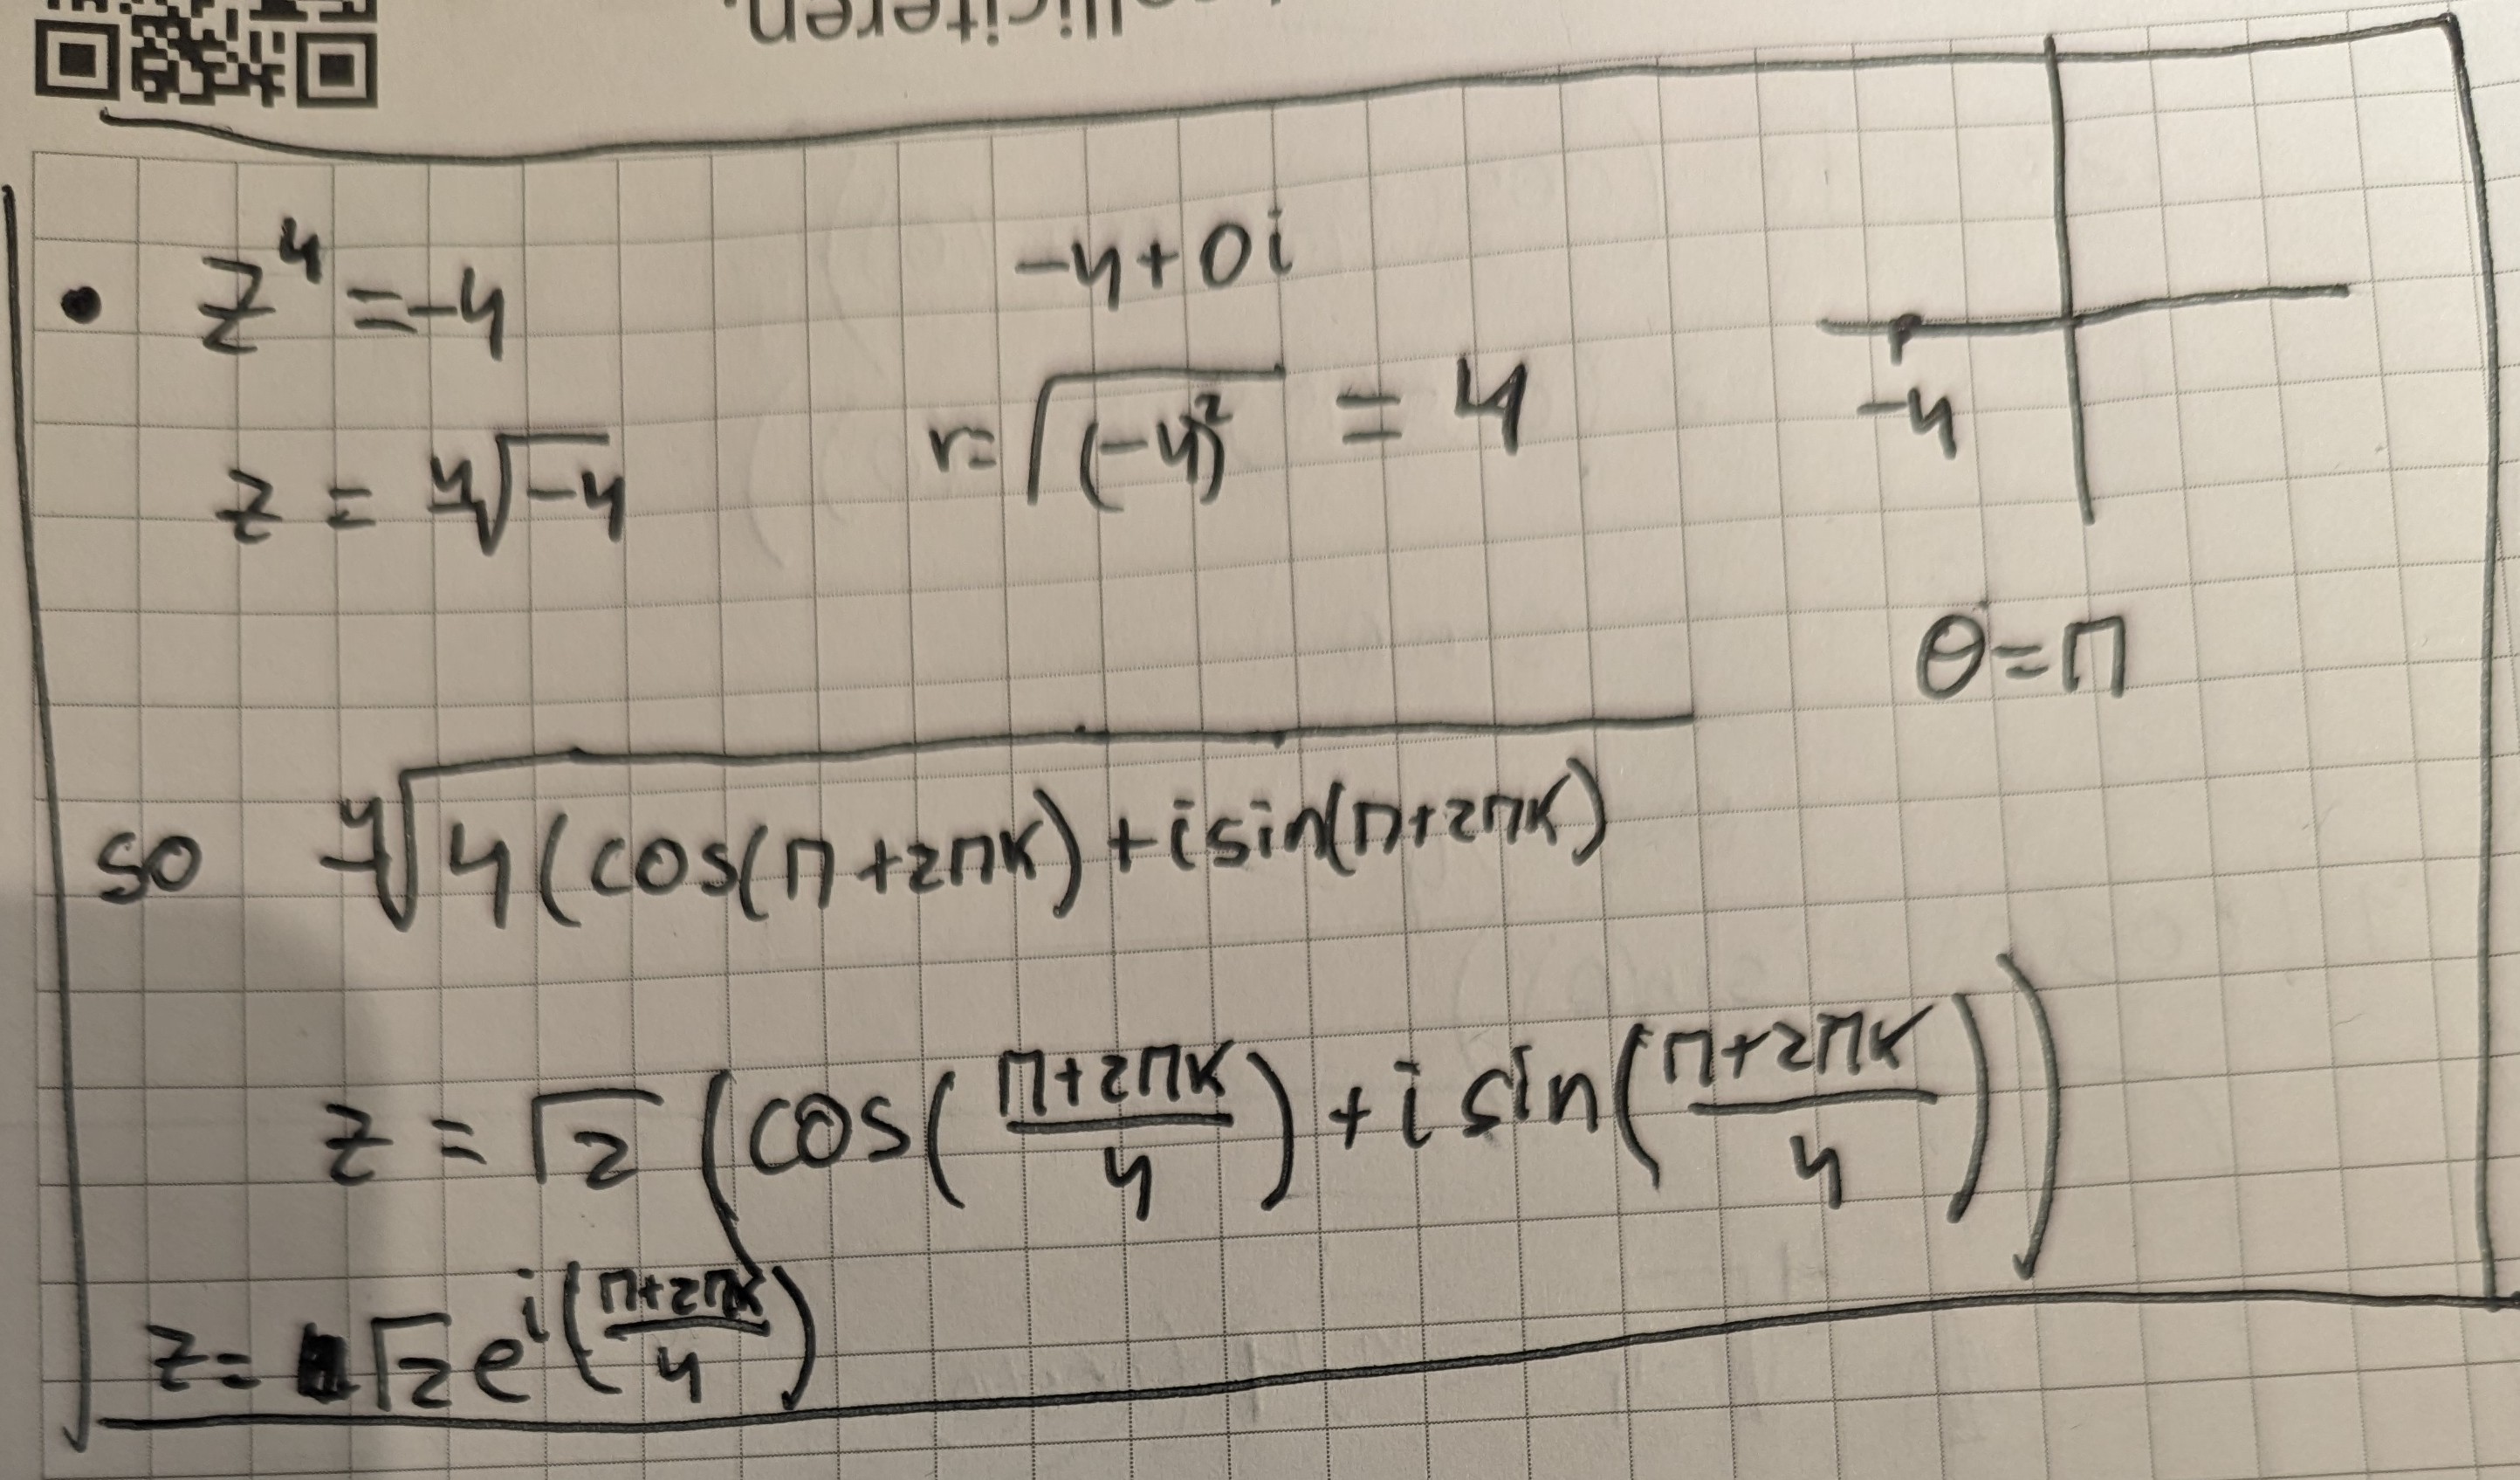 olliciteren.
• z⁴ = -4
-4+0i
z = ⁴√-4
r= √(-4)² = 4
-4
θ=π
so ⁴√4(cos(π+2πk)+isin(π+2πk)
z = √2 (cos((π+2πk)/4)+i sin((π+2πk)/4))
z= √2 e^i((π+2πk)/4)